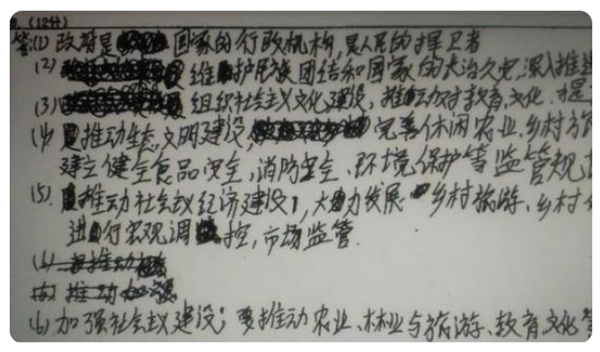 (12分)
答:(1) 政府是国家的行政机构,是人民的捍卫者
(2) 维护民族团结和国家的长治久安,深入推进
(3) 组织社会主义文化建设,推动对教育、文化、
(4) 推动生态文明建设,完善休闲农业、乡村旅
建立健全食品安全、消防安全、环境保护等监管规
(5) 推动社会主义经济建设,大力发展乡村旅游、乡村
进行宏观调控,市场监管.
推动
推动
(6) 加强社会主义建设;要推动农业、林业与旅游、教育、文化等